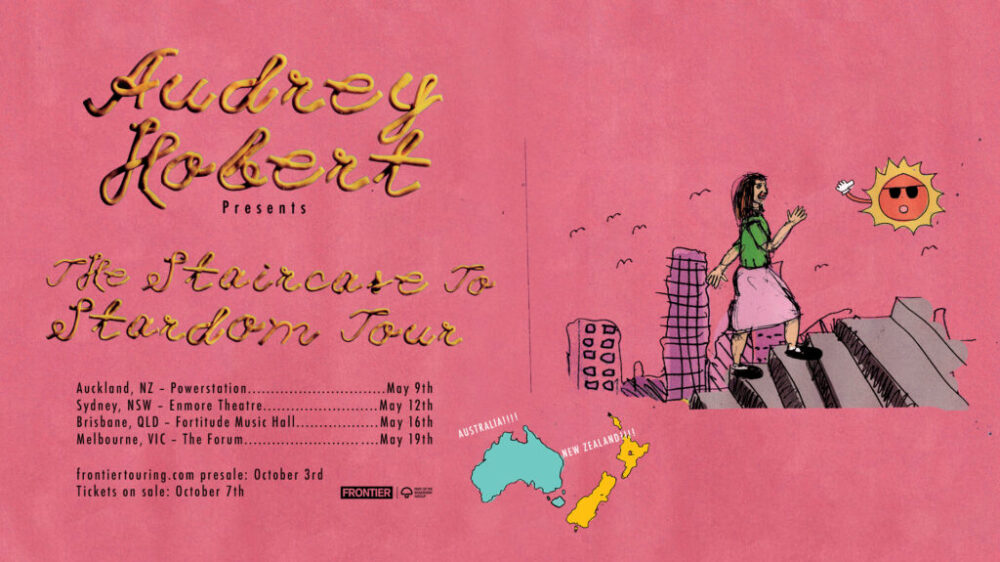 Audrey
Hobert
Presents
The Staircase To
Stardom Tour
Auckland, NZ – Powerstation..............................May 9th
Sydney, NSW – Enmore Theatre.........................May 12th
Brisbane, QLD – Fortitude Music Hall..................May 16th
Melbourne, VIC – The Forum.............................May 19th
frontiertouring.com presale: October 3rd
Tickets on sale: October 7th
FRONTIER
PART OF THE
MUSHROOM
GROUP
AUSTRALIA!!!!
NEW ZEALAND!!!!